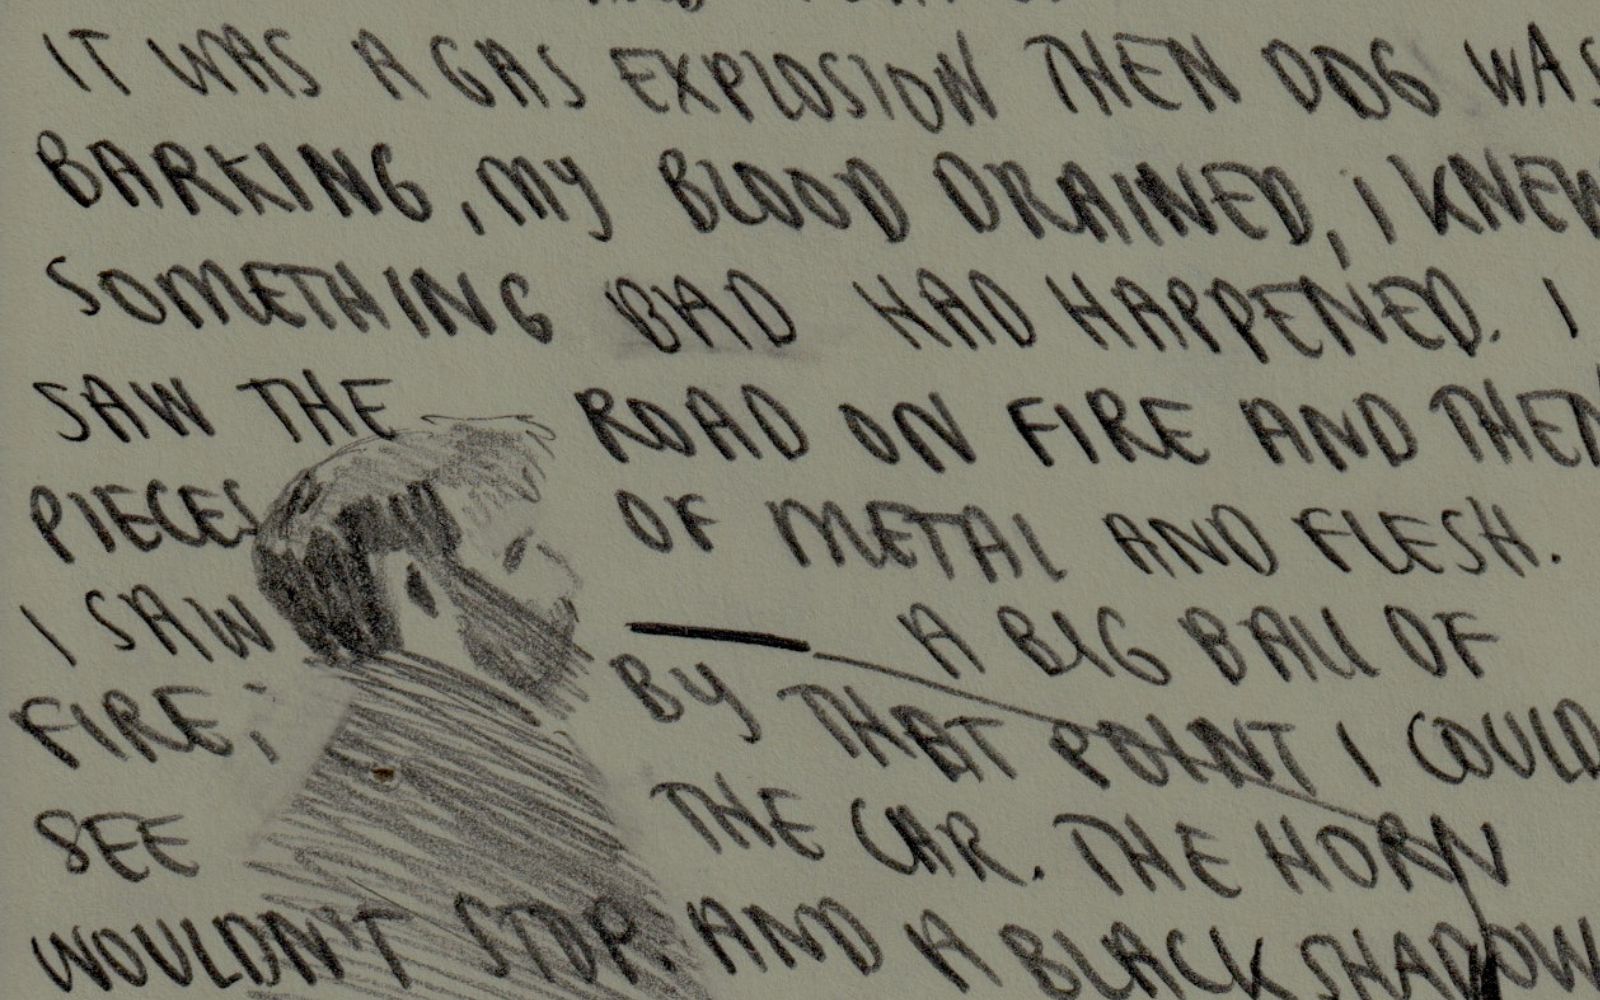 IT WAS A GAS EXPLOSION THEN DOG WAS
BARKING, MY BLOOD DRAINED, I KNEW
SOMETHING BAD HAD HAPPENED. I
SAW THE ROAD ON FIRE AND THEN
PIECES OF METAL AND FLESH.
I SAW A BIG BALL OF
FIRE; BY THAT POINT I COULD
SEE THE CAR. THE HORN
WOULDN'T STOP. AND A BLACK SHADOW